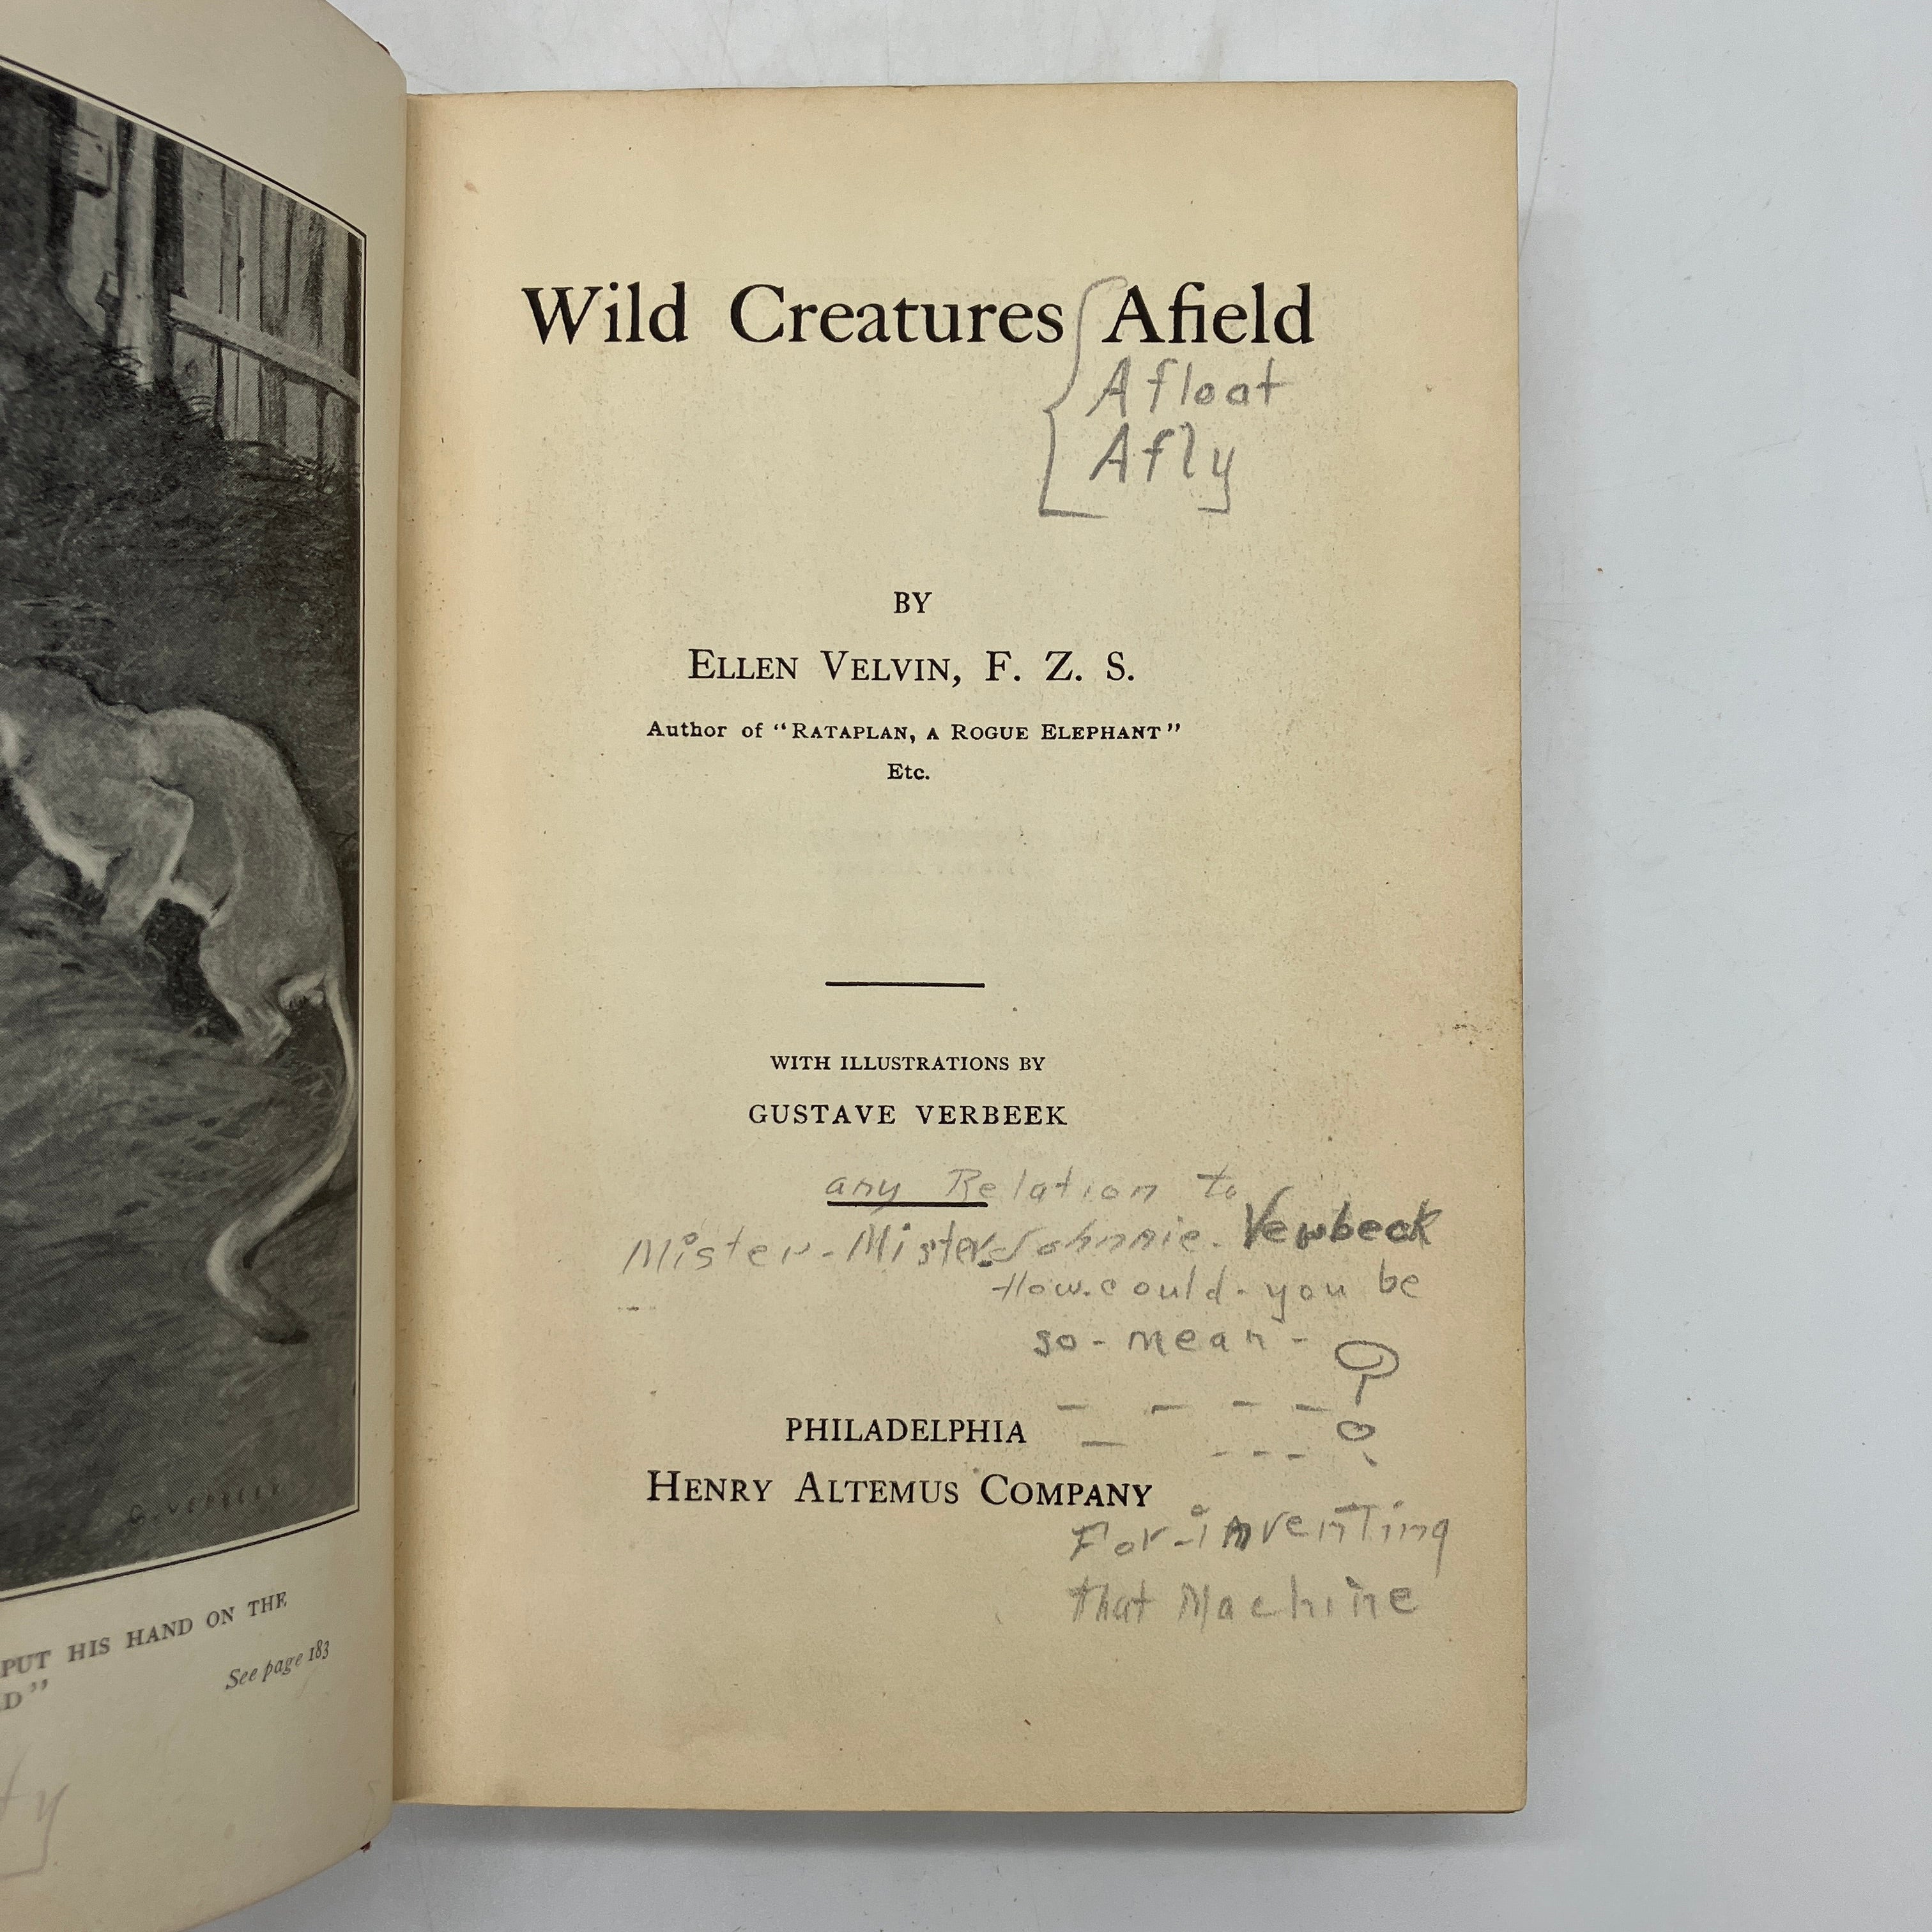 G. VERBEEK
PUT HIS HAND ON THE
D"
See page 183
ty
Wild Creatures Afield
Afloat
Afly
BY
ELLEN VELVIN, F. Z. S.
Author of "RATAPLAN, A ROGUE ELEPHANT"
Etc.
WITH ILLUSTRATIONS BY
GUSTAVE VERBEEK
any Relation to
Mister-Mister Johnnie. Verbeck
How. could. you be
so-mean-
PHILADELPHIA
HENRY ALTEMUS COMPANY
For-inventing
that Machine